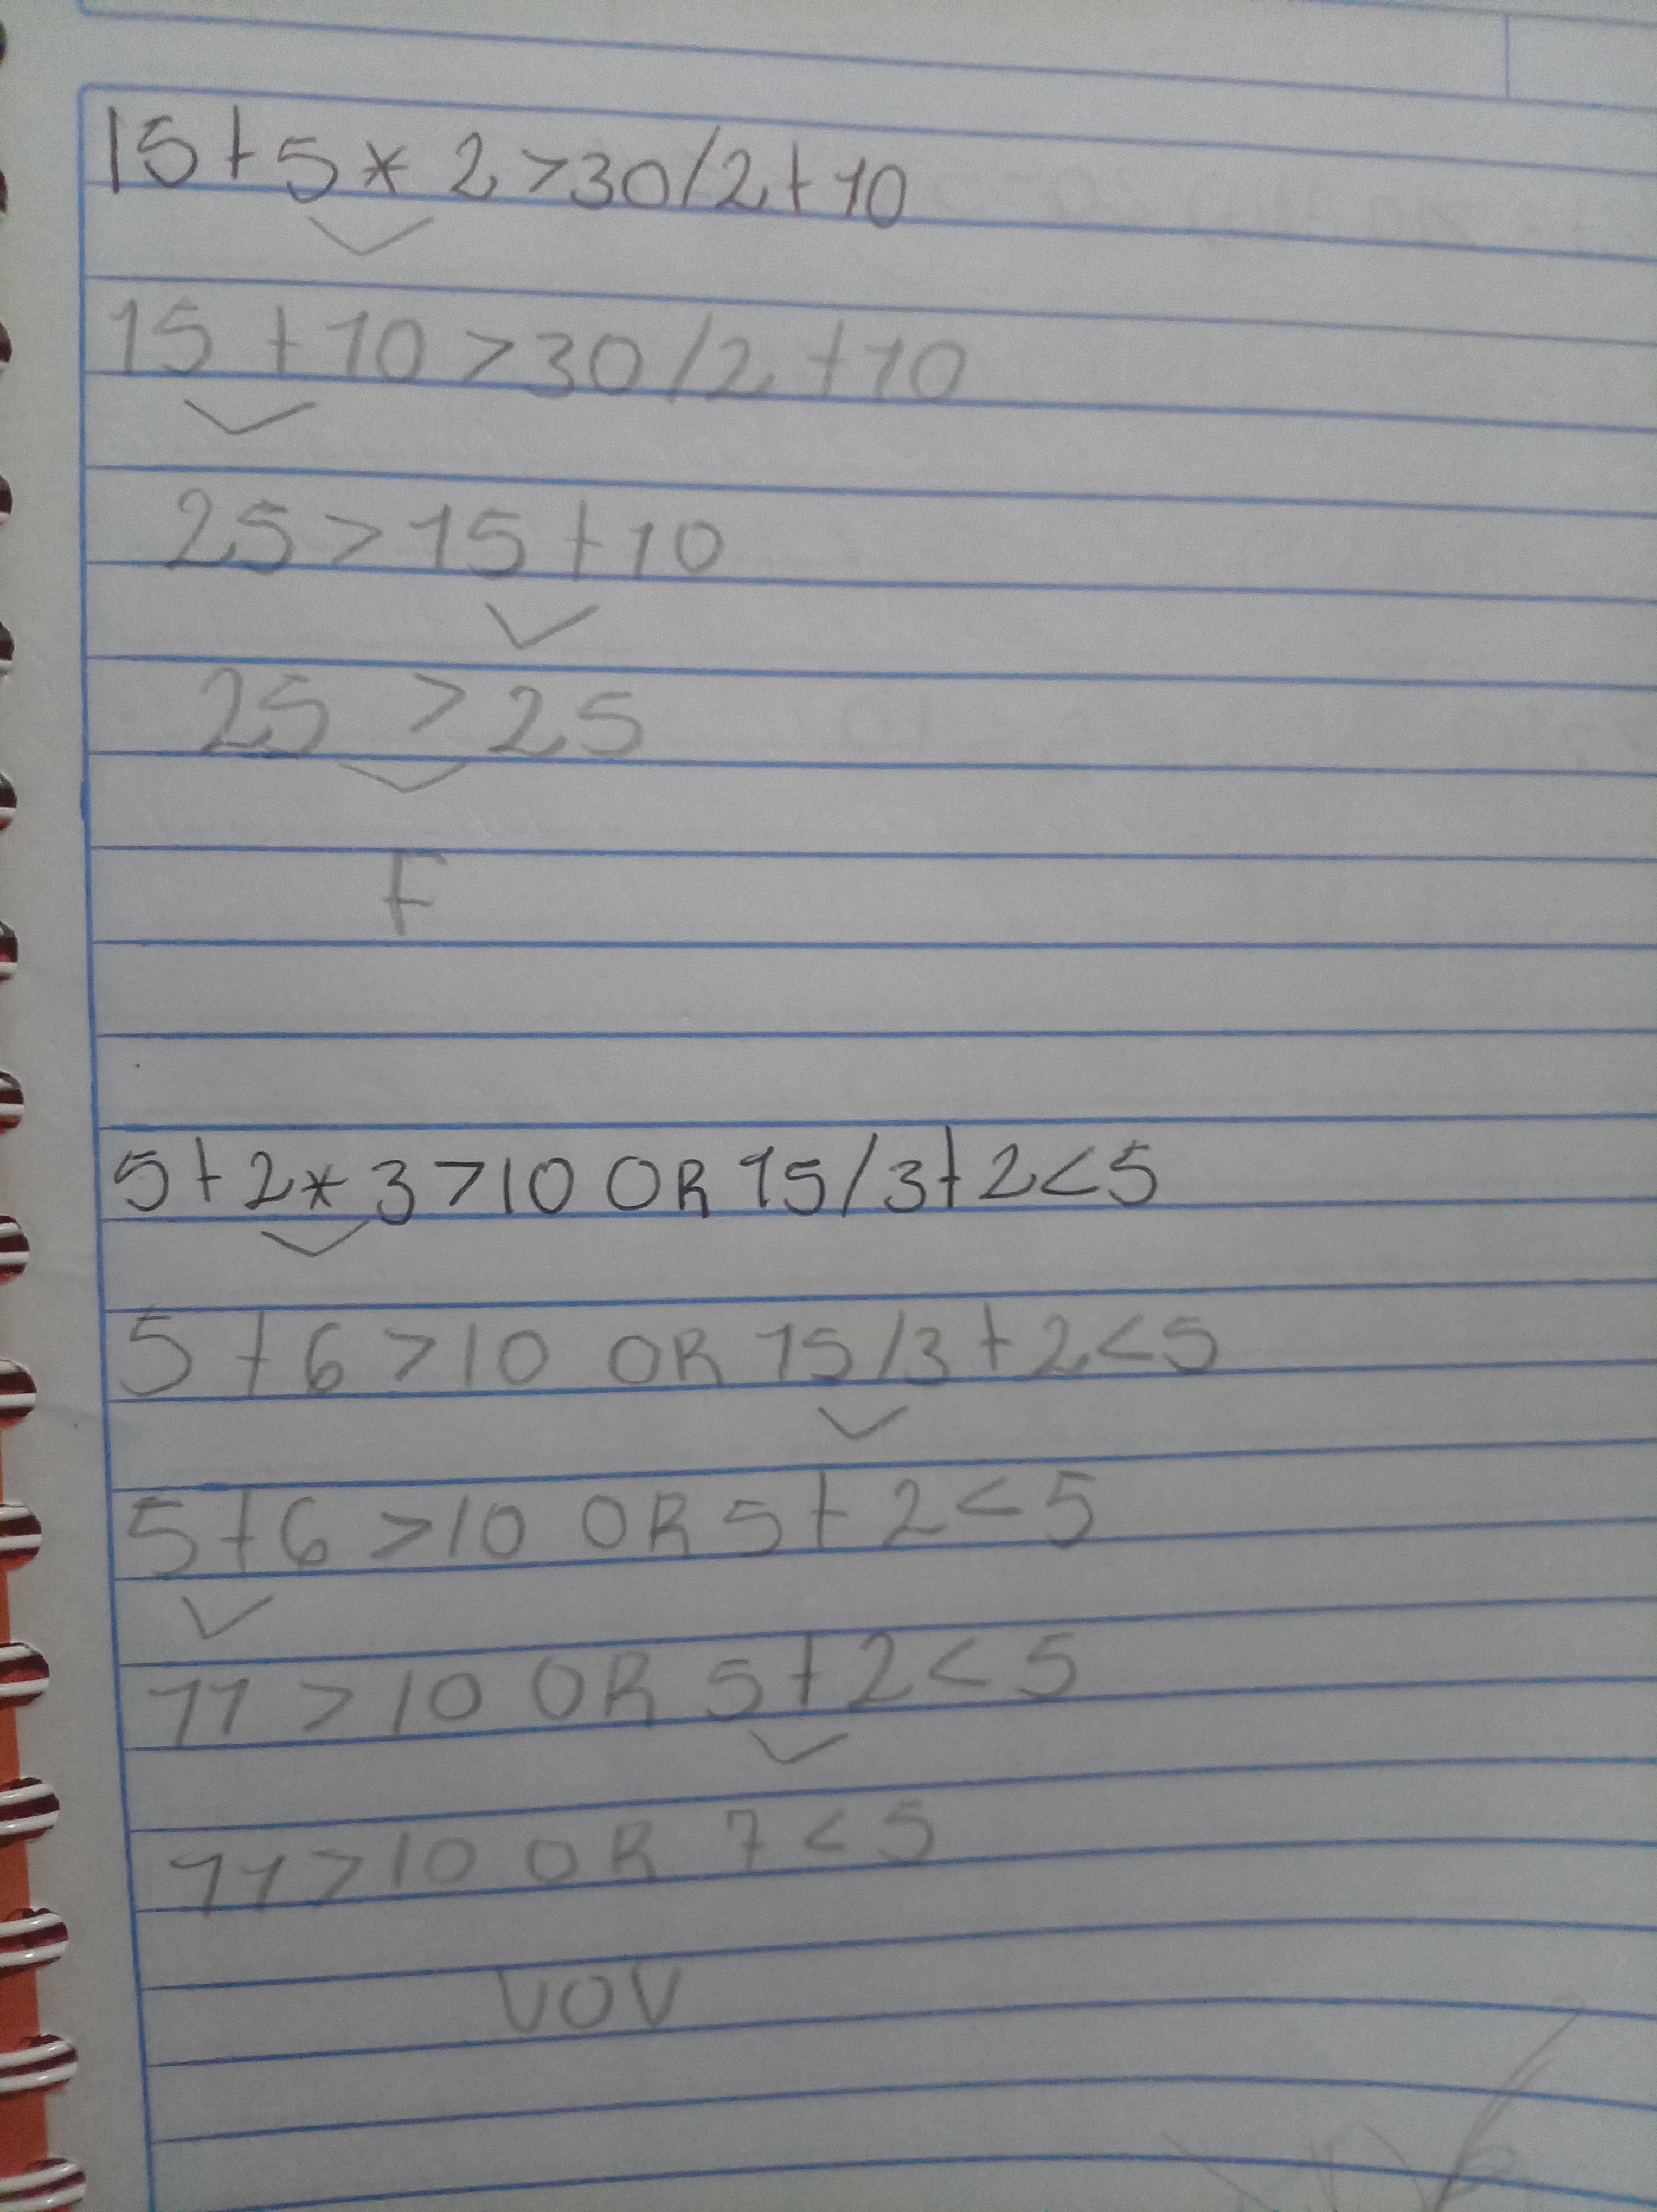 15+5*2>30/2+10
15+10>30/2+10
25>15+10
25>25
F
5+2*3>10 OR 15/3+2<5
5+6>10 OR 15/3+2<5
5+6>10 OR 5+2<5
11>10 OR 5+2<5
11>10 OR 7<5
VOV